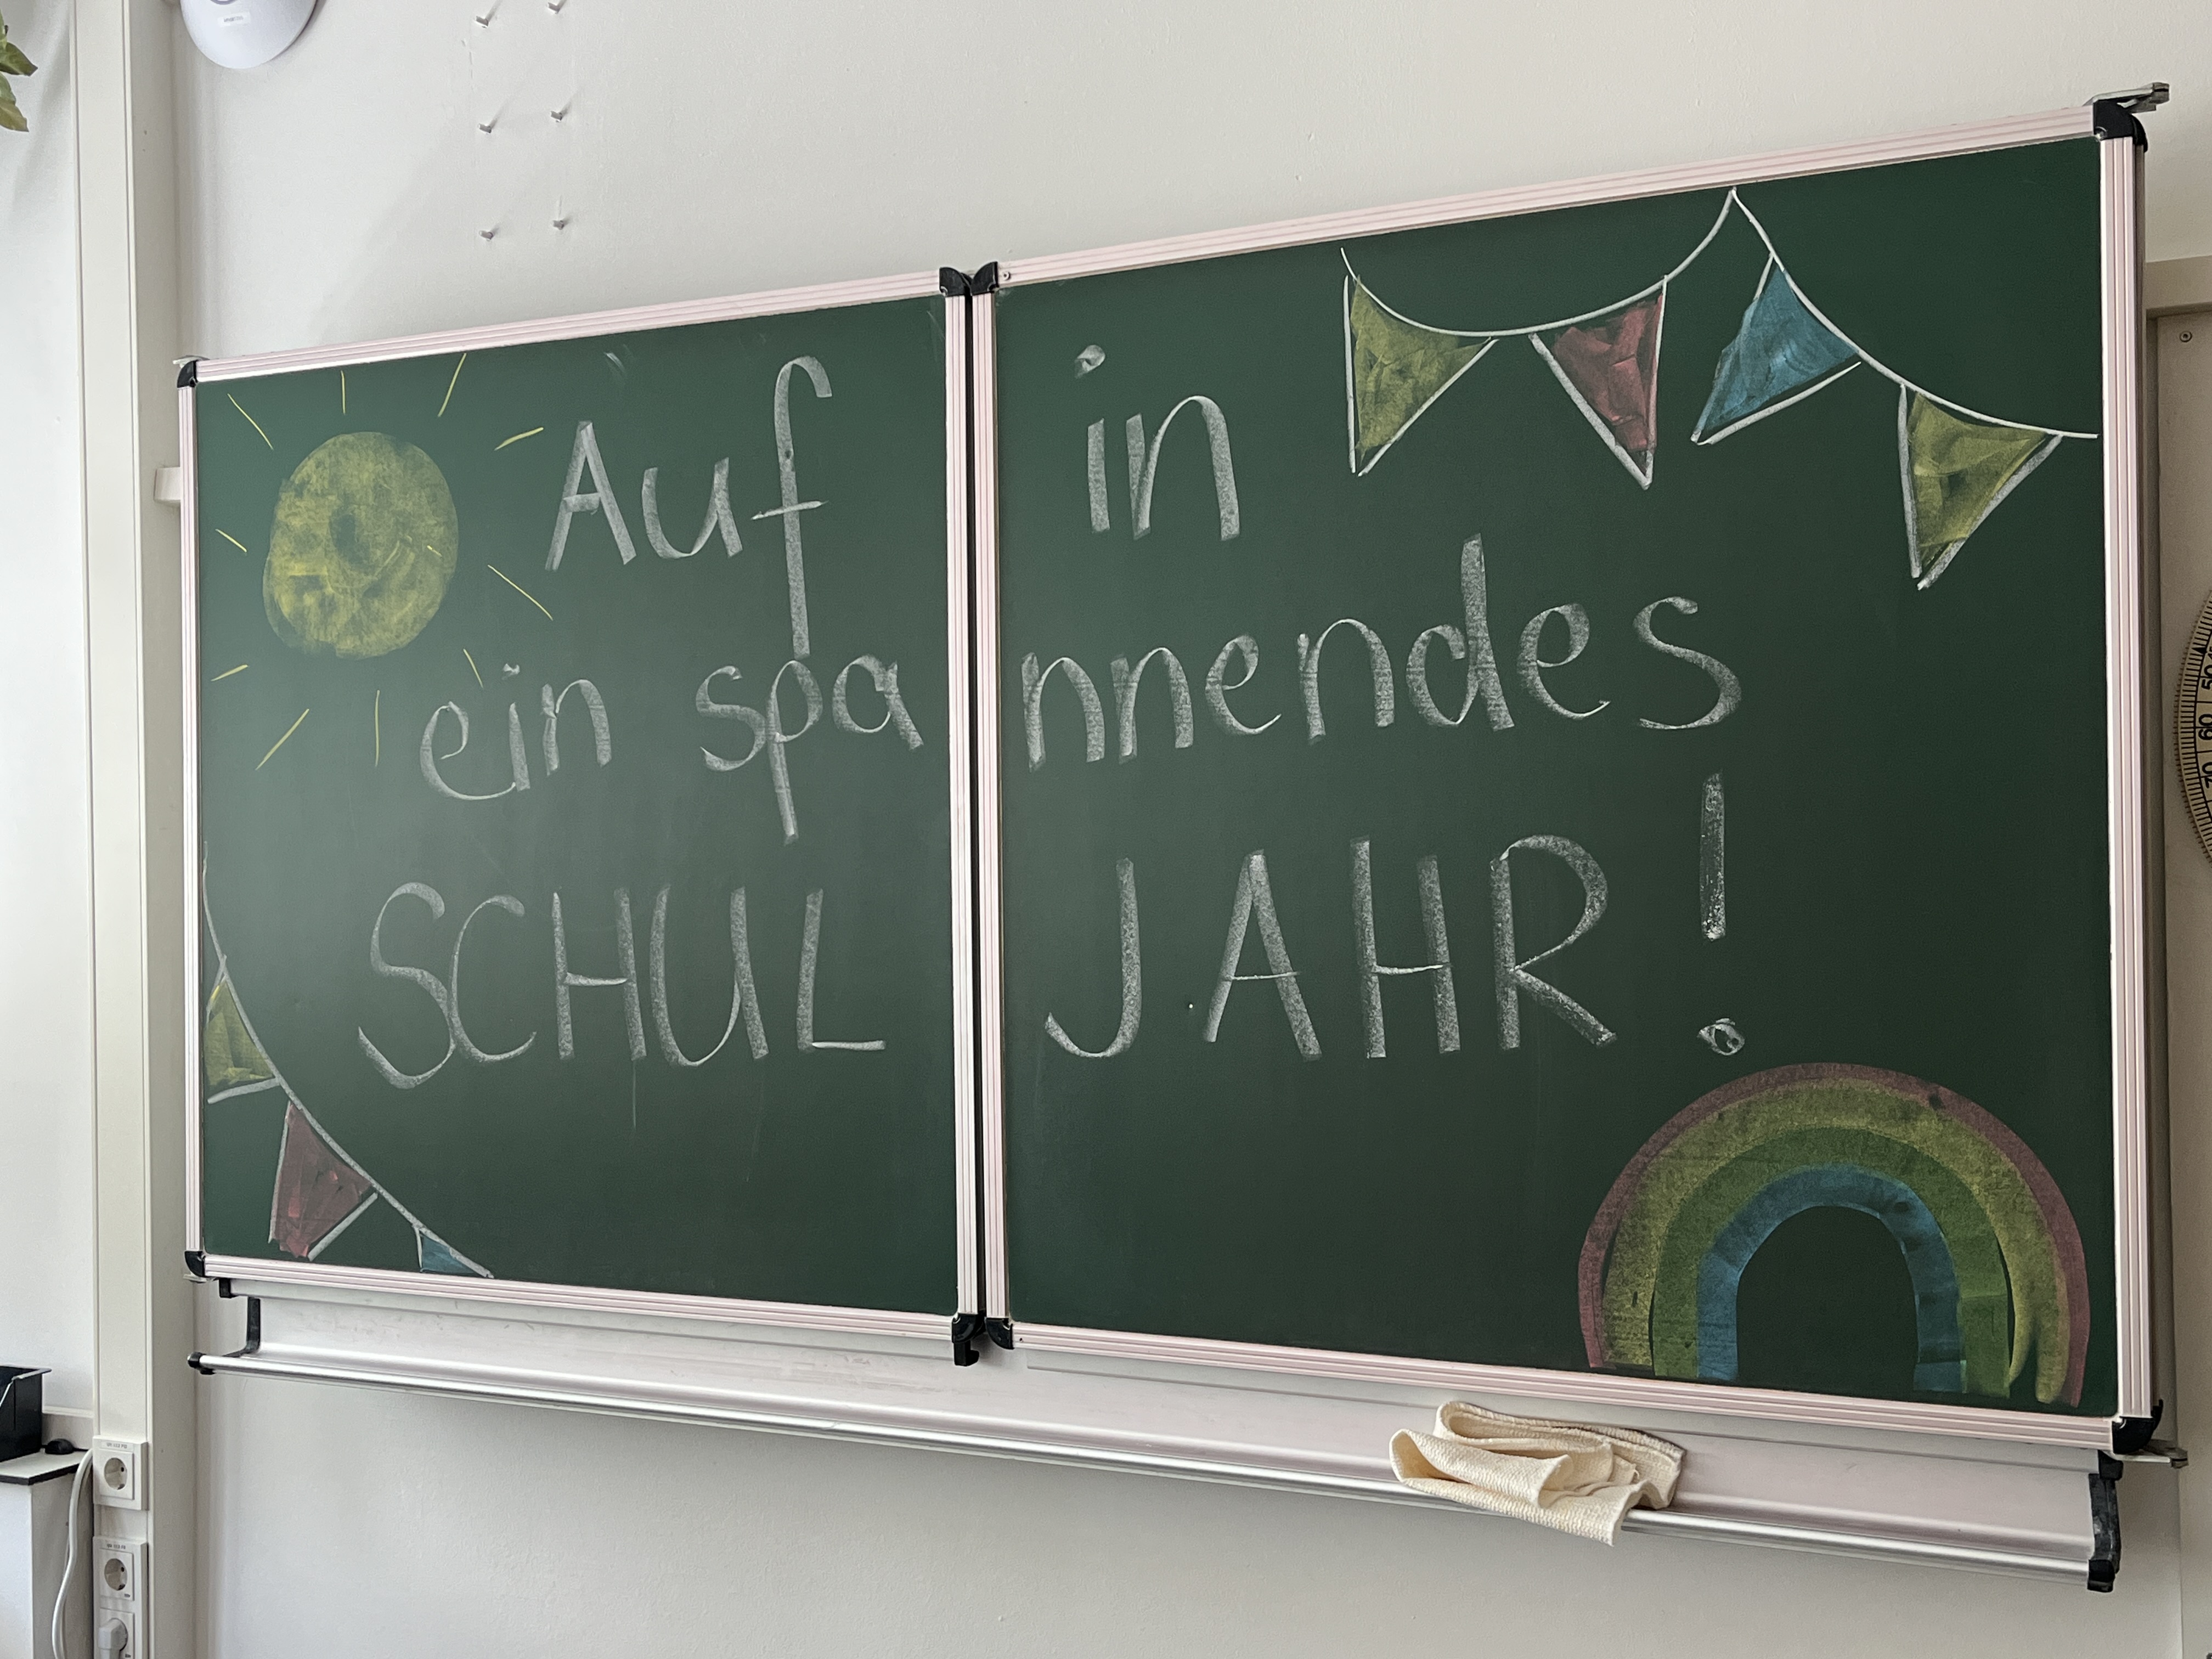 Auf in
ein spannendes
SCHUL JAHR!
50
60
70